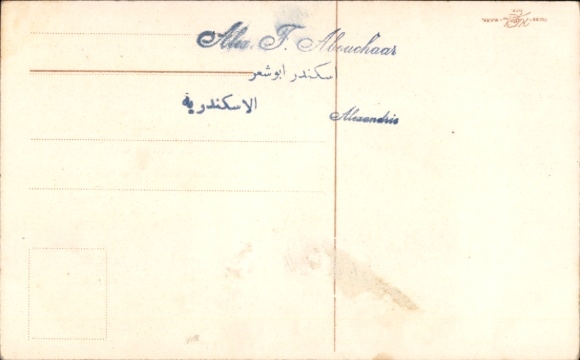 Alex. F. Abouchaar
اسكندر ابوشعر
الاسكندرية
Alexandrie